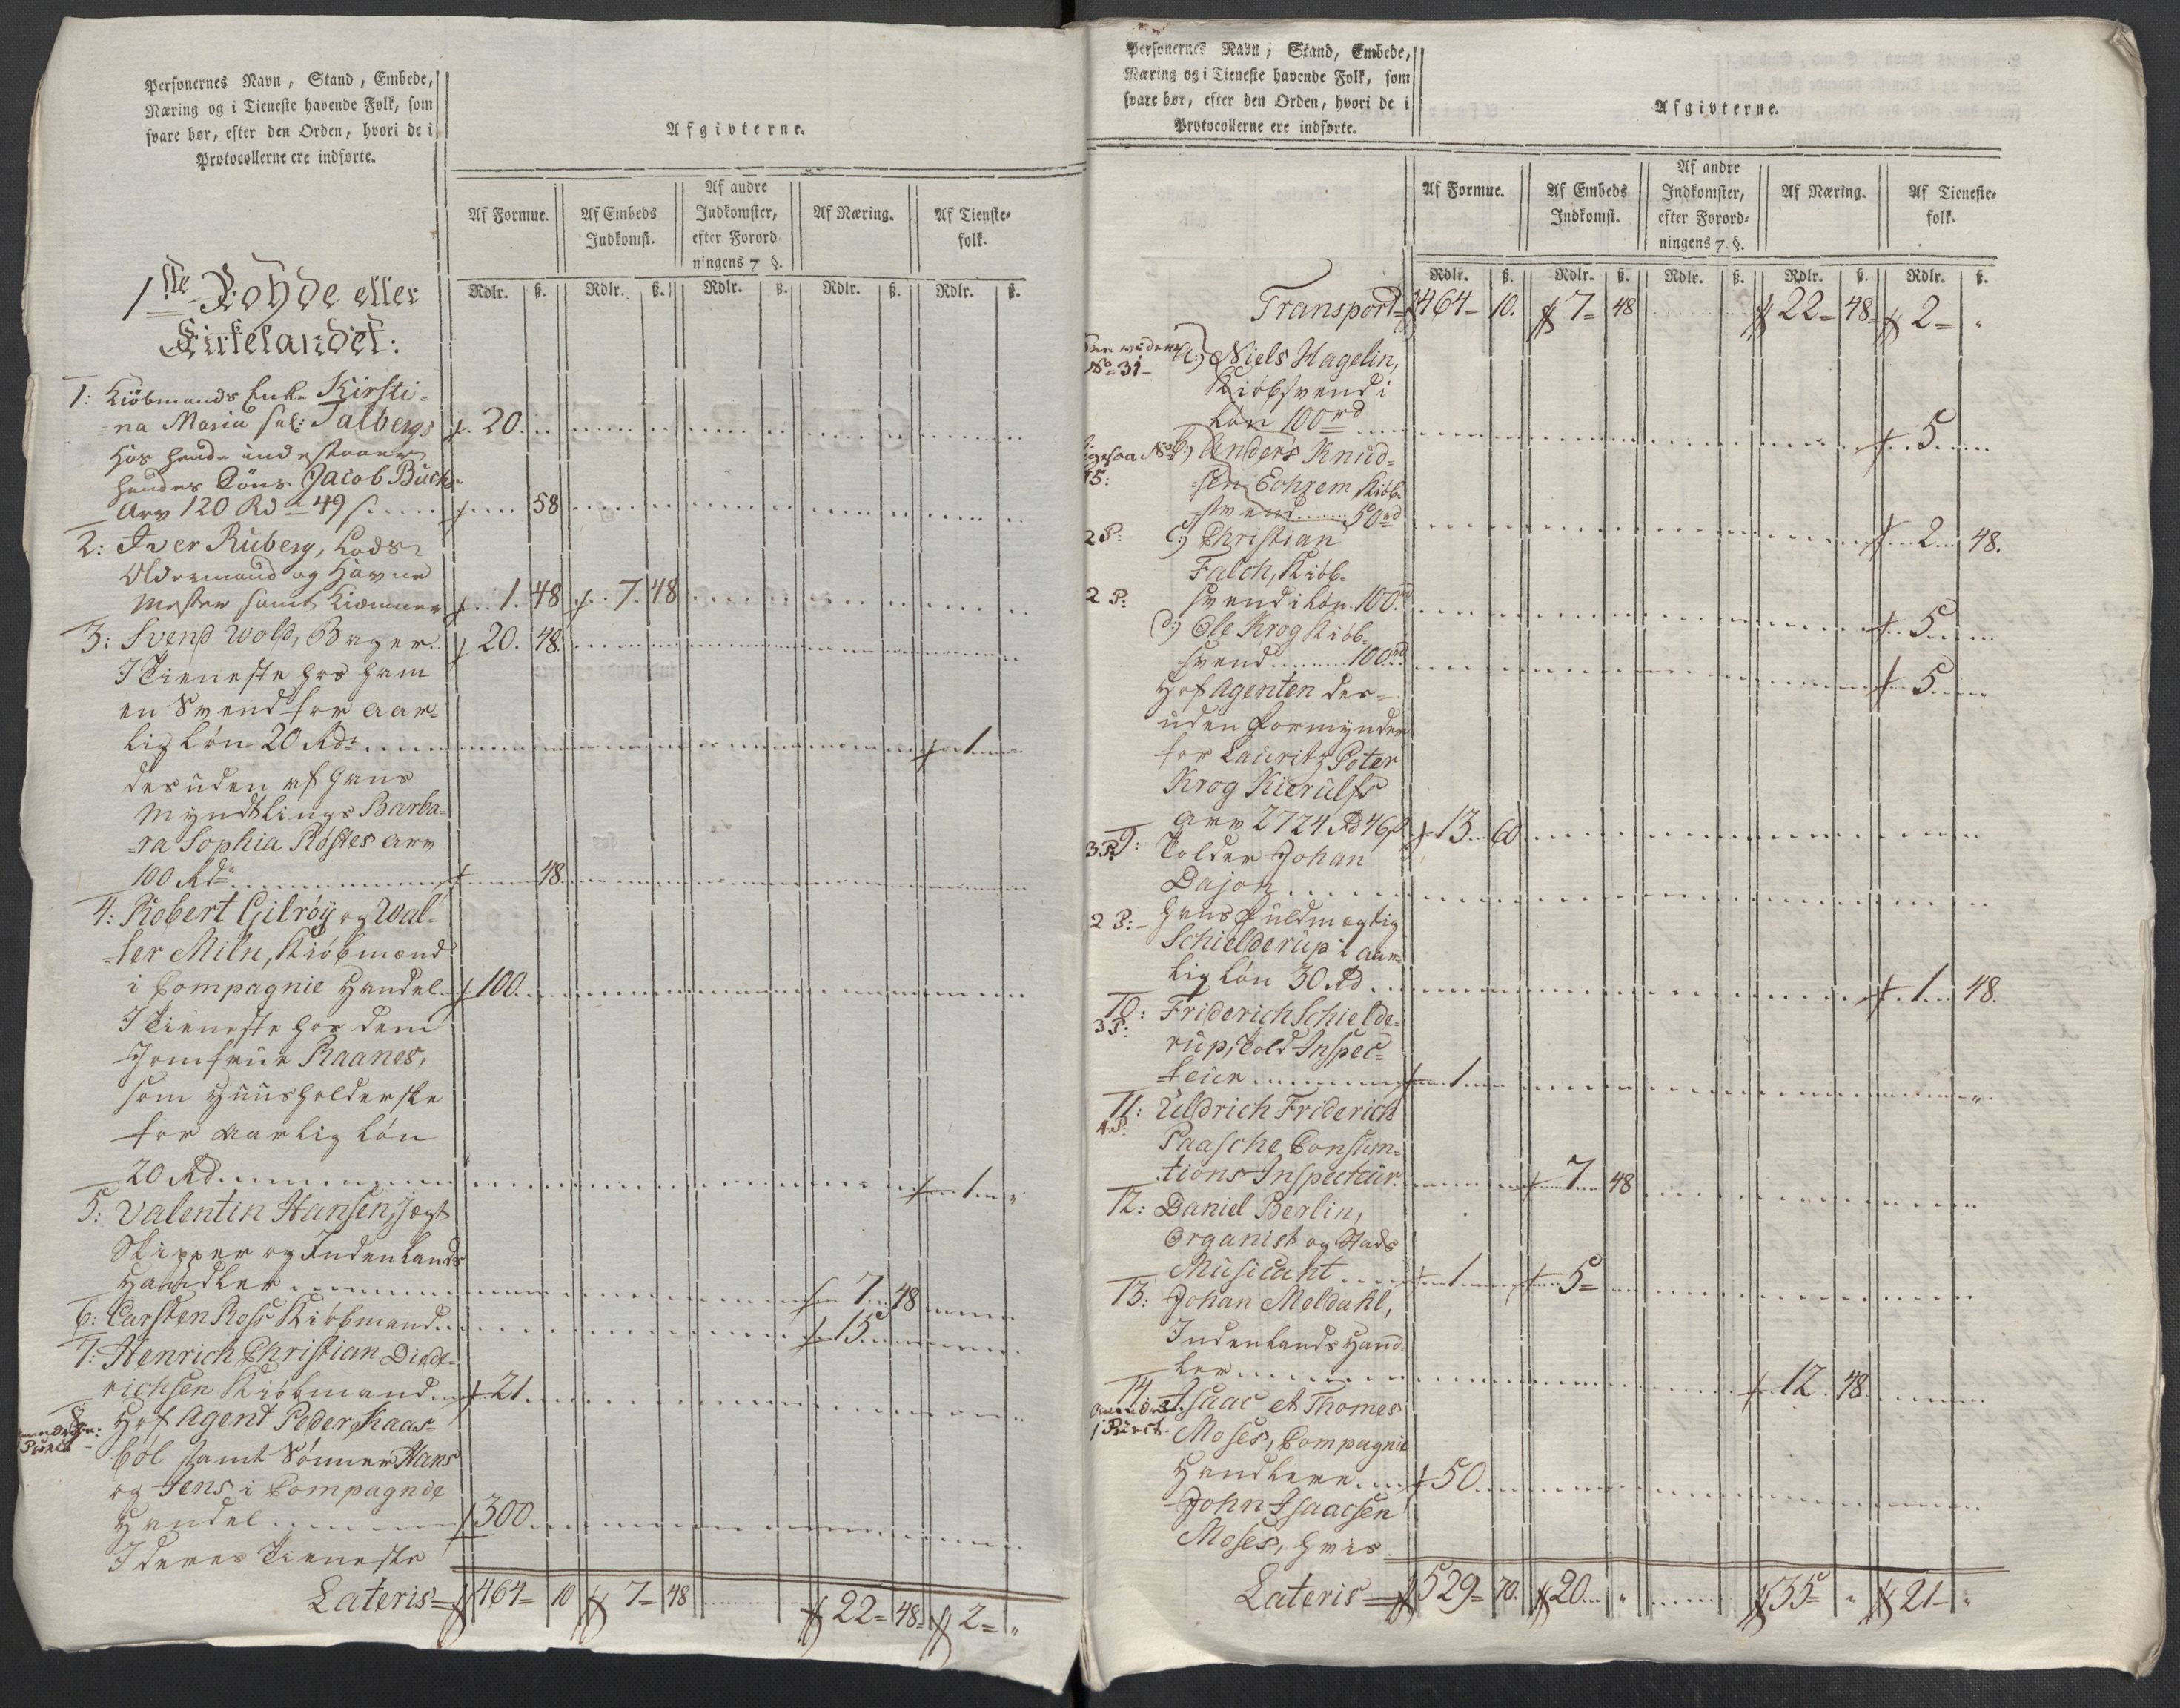 Personernes Navn, Stand, Embede,
Næring og i Tieneste havende Folk, som
svare bør, efter den Orden, hvori de i
Protocollerne ere indførte.
Afgivterne.
Af Formue.
Af Embeds
Indkomst.
Af andre
Indkomster,
efter Forord
ningens 7 §.
Af Næring.
Af Tieneste-
folk.
Rdlr. ß. Rdlr. ß. Rdlr. ß. Rdlr. ß. Rdlr. ß.
1ste Rohde eller
Kirkelandet:
1: Kiöbmands Enke Kirsti-
-na Maria sal: Talbergs 20.
Hos hende indestaaer
hendes Söns Jacob Bucks
Arv 120 Rd 49 ß 58
2: Iver Ruberg, Lods
Oldermand og Havne
Mester samt Kiæmner 1. 48 7. 48
3: Svend Wold, Bager 20. 48.
I Tieneste hos ham
en Svend for aar-
lig Løn 20 Rdr 1
desuden af hans
Myndtlings Barba-
-ra Sophia Röstes Arv
100 Rdr 48
4: Robert Gilröy og Wal-
-ter Miln, Kiöbmænd
i Compagnie Handel 100.
I Tieneste hos dem
Jomfrue Raanes,
som Huusholderske
for aarlig Løn
20 Rd 1 "
5: Valentin Hansen, Jægt
Skipper og Indenlands
Handler 7. 48
6: Carsten Ross Kiöbmand 15
7: Henrich Christian Diede-
richsen Kiöbmand 21
8: Hof Agent Peder Kaas-
böl samt Sönner Hans
og Jens i Compagnie
Handel 300
I deres Tieneste
Lateris 464 10 7 48 22 48 2 "
Personernes Navn, Stand, Embede,
Næring og i Tieneste havende Folk, som
svare bør, efter den Orden, hvori de i
Protocollerne ere indførte.
Afgivterne.
Af Formue.
Af Embeds
Indkomst.
Af andre
Indkomster,
efter Forord-
ningens 7. §.
Af Næring.
Af Tieneste-
folk.
Rdlr. ß. Rdlr. ß. Rdlr. ß. Rdlr. ß. Rdlr. ß.
Transport 464 10. 7 48 22 48 2 "
No 31 a:) Niels Hagelin,
Kiöbsvend i
Løn 100rd 5
ligesaa No b:) Anders Knud-
75: -sen Echrem Kiöb-
svend 50rd 2 48.
2 P: c:) Christian
Falch, Kiöb-
2 P: svend i Løn 100rd 5
d:) Ole Krog Kiöb-
svend 100rd 5
Hof Agenten des-
uden Formynder
for Lauritz Peter
Krog Kierulfs
Arv 2724 Rd 46 ß 13 60
3 P. 9: Tolder Johan
Dajon
2 P: hans Fuldmægtig
Schielderup i aar-
lig Løn 30 Rd 1 48.
10: Friderich Schielde-
3 P: rup, Told Inspec-
-teur 1
11: Uldrich Friderich
4 P: Paasche Consum-
tions Inspecteur 7 48
12: Daniel Berlin,
Organist og Stads
Musicant 1 5
13: Johan Meldahl,
Indenlands Hand-
ler 12. 48
14: Isaac et Thomes
1 Punct. Moses, Compagnie
Handlere 50
John Isaacsen
Moses, hvis
Lateris 529 70. 20 " 35 " 21 "